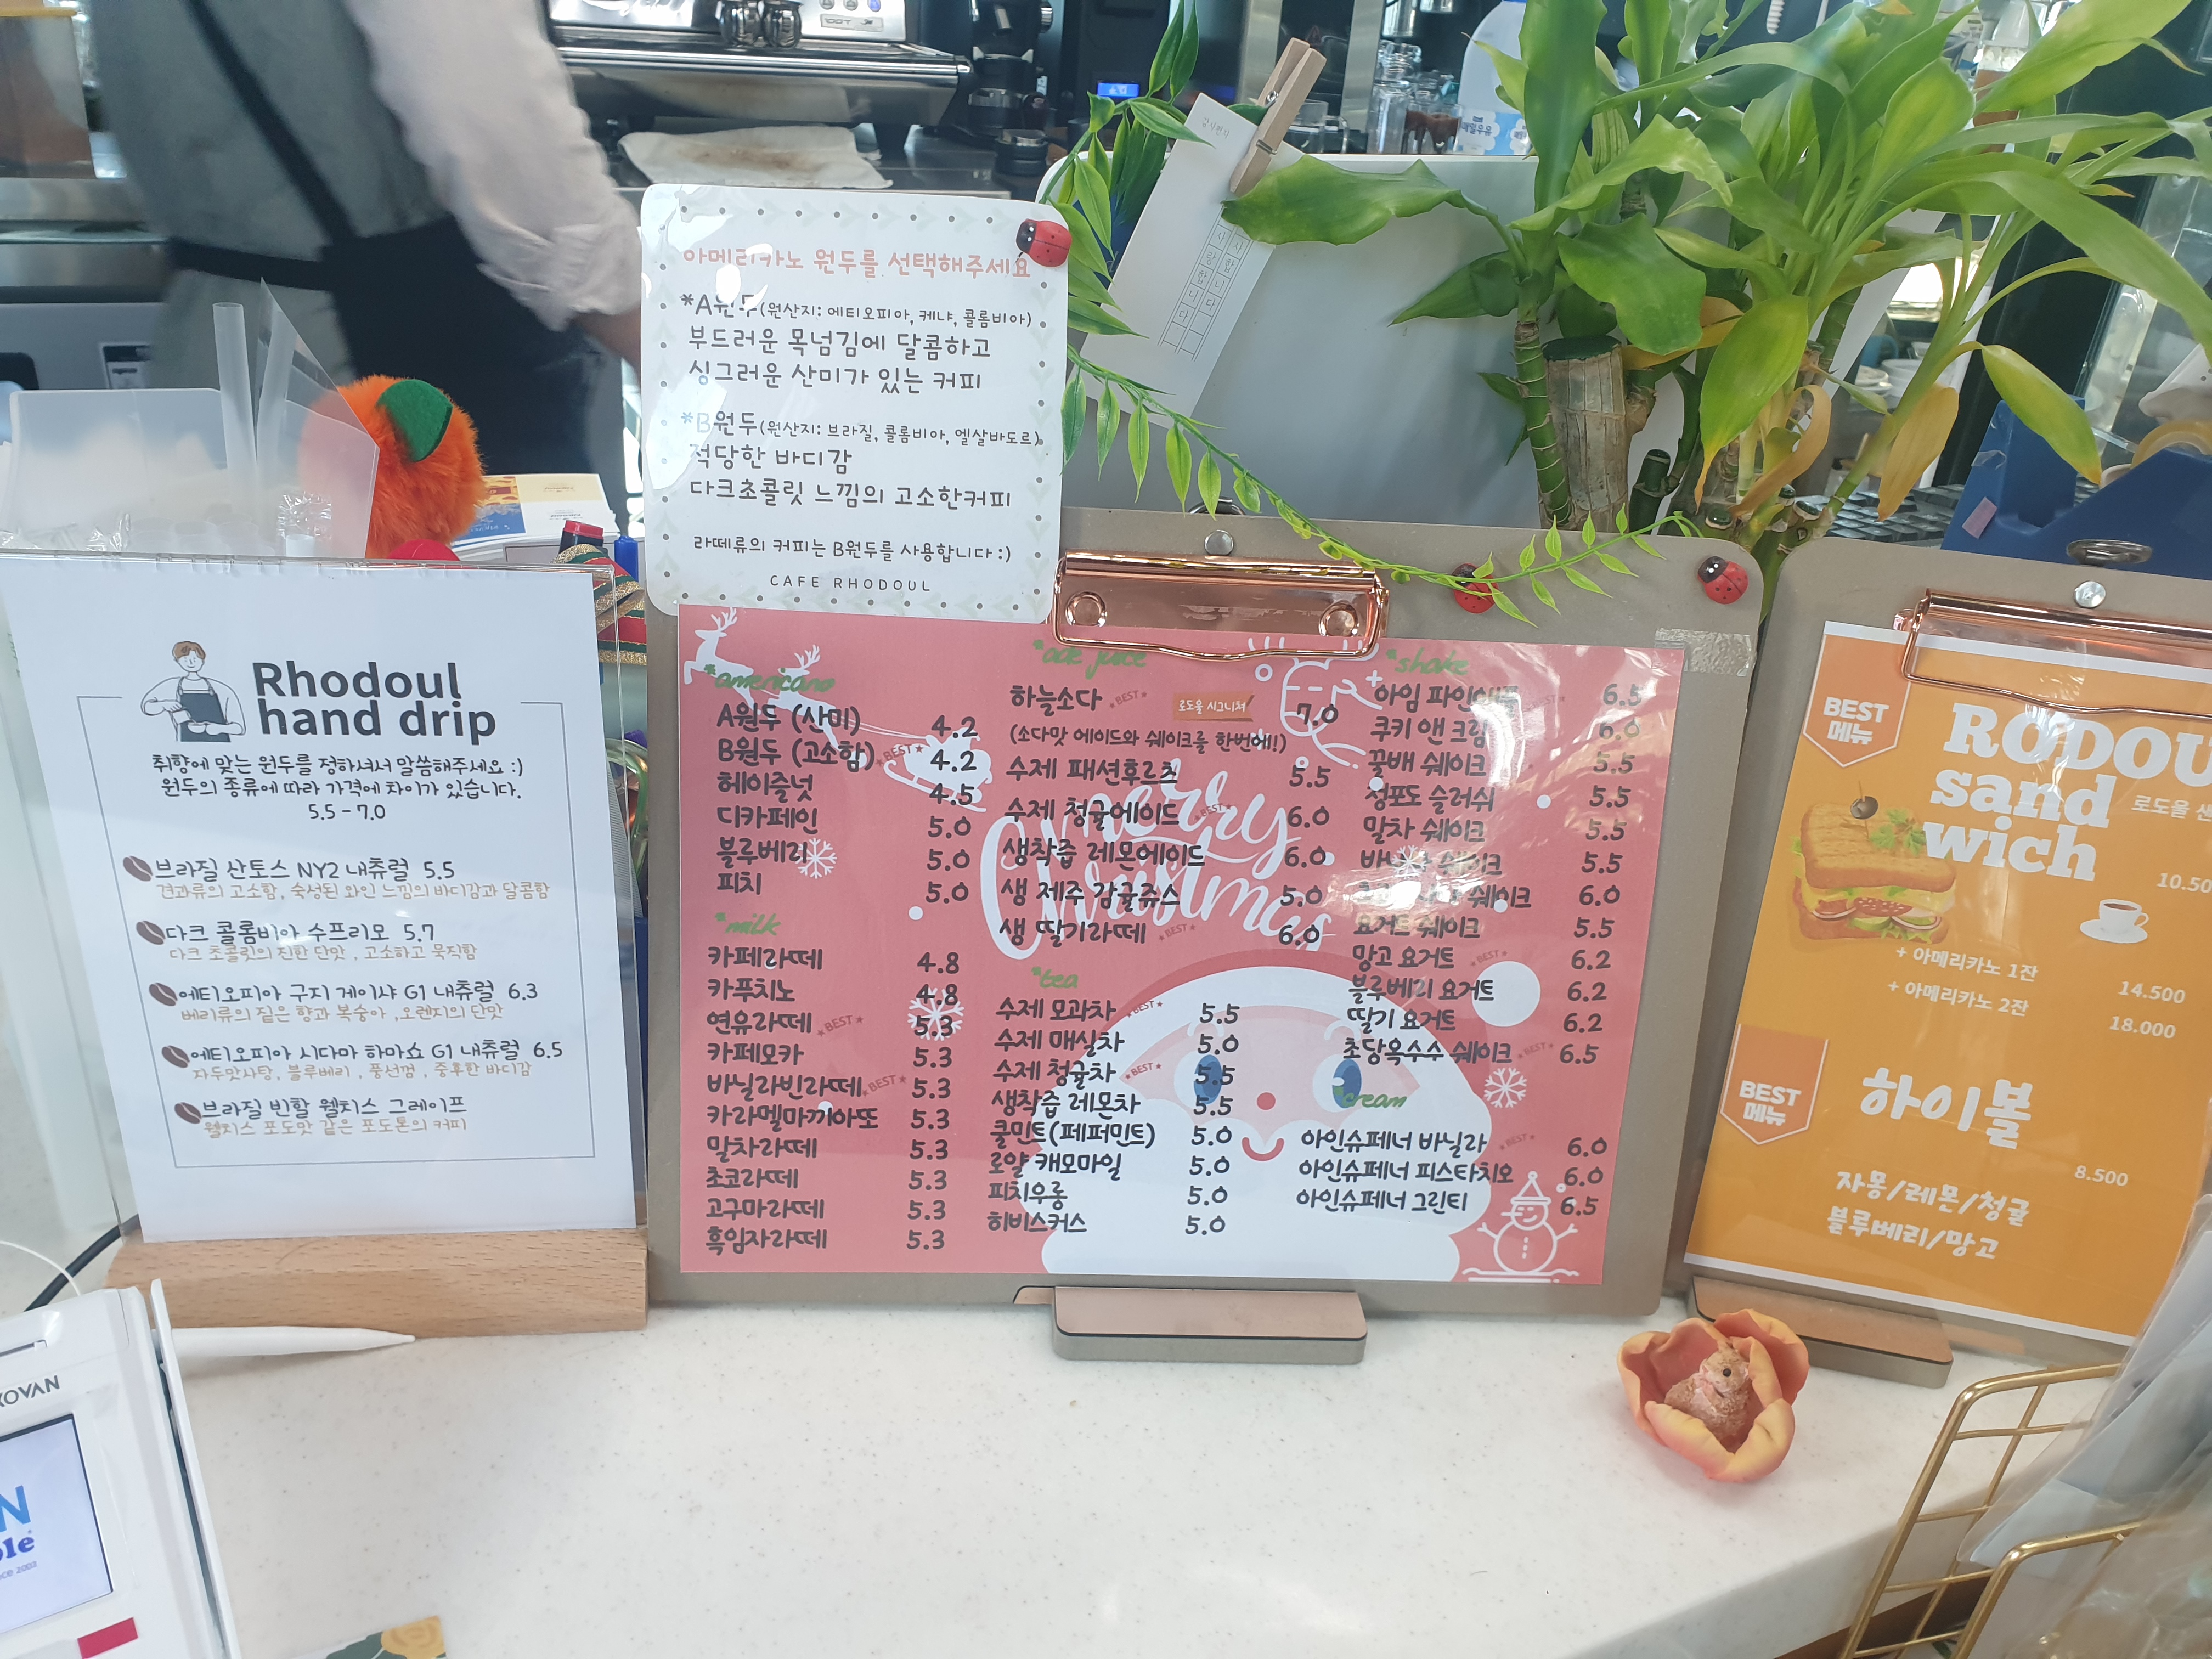 아메리카노 원두를 선택해주세요
*A원두(원산지: 에티오피아, 케냐, 콜롬비아)
부드러운 목넘김에 달콤하고
싱그러운 산미가 있는 커피
*B원두(원산지: 브라질, 콜롬비아, 엘살바도르)
적당한 바디감
다크초콜릿 느낌의 고소한커피
라떼류의 커피는 B원두를 사용합니다 :)
CAFE RHODOUL
감사편지
사랑합니다
Rhodoul
hand drip
취향에 맞는 원두를 정하셔서 말씀해주세요 :)
원두의 종류에 따라 가격에 차이가 있습니다.
5.5 - 7.0
브라질 산토스 NY2 내츄럴 5.5
견과류의 고소함, 숙성된 와인 느낌의 바디감과 달콤함
다크 콜롬비아 수프리모 5.7
다크 초콜릿의 진한 단맛 , 고소하고 묵직함
에티오피아 구지 게이샤 G1 내츄럴 6.3
베리류의 짙은 향과 복숭아 ,오렌지의 단맛
에티오피아 시다마 하마쇼 G1 내츄럴 6.5
자두맛사탕, 블루베리 , 풍선껌 , 중후한 바디감
브라질 빈할 웰치스 그레이프
웰치스 포도맛 같은 포도톤의 커피
*americano
A원두 (산미) 4.2
B원두 (고소함) BEST 4.2
헤이즐넛 4.5
디카페인 5.0
블루베리 5.0
피치 5.0
*milk
카페라떼 4.8
카푸치노 4.8
연유라떼 BEST 5.3
카페모카 5.3
바닐라빈라떼 BEST 5.3
카라멜마끼아또 5.3
말차라떼 5.3
초코라떼 5.3
고구마라떼 5.3
흑임자라떼 5.3
*ade juice
하늘소다 BEST 로도울 시그니쳐 7.0
(소다맛 에이드와 쉐이크를 한번에!)
수제 패션후르츠 5.5
수제 청귤에이드 BEST 6.0
생착즙 레몬에이드 6.0
생 제주 감귤쥬스 5.0
생 딸기라떼 BEST 6.0
merry
Christmas
*tea
수제 모과차 BEST 5.5
수제 매실차 5.0
수제 청귤차 BEST 5.5
생착즙 레몬차 5.5
쿨민트(페퍼민트) 5.0
로얄 캐모마일 5.0
피치우롱 5.0
히비스커스 5.0
*shake
아임 파인애플 BEST 6.5
쿠키 앤 크림 6.0
꿀배 쉐이크 5.5
청포도 슬러쉬 5.5
말차 쉐이크 5.5
쉐이크 5.5
쉐이크 6.0
요거트 쉐이크 5.5
망고 요거트 BEST 6.2
블루베리 요거트 6.2
딸기 요거트 6.2
초당옥수수 쉐이크 BEST 6.5
*cream
아인슈페너 바닐라 BEST 6.0
아인슈페너 피스타치오 6.0
아인슈페너 그린티 6.5
BEST
메뉴
RODOU
sand
wich
로도울
10.50
+ 아메리카노 1잔
14.500
+ 아메리카노 2잔
18.000
BEST
메뉴
하이볼
8.500
자몽/레몬/청귤
블루베리/망고
KOVAN